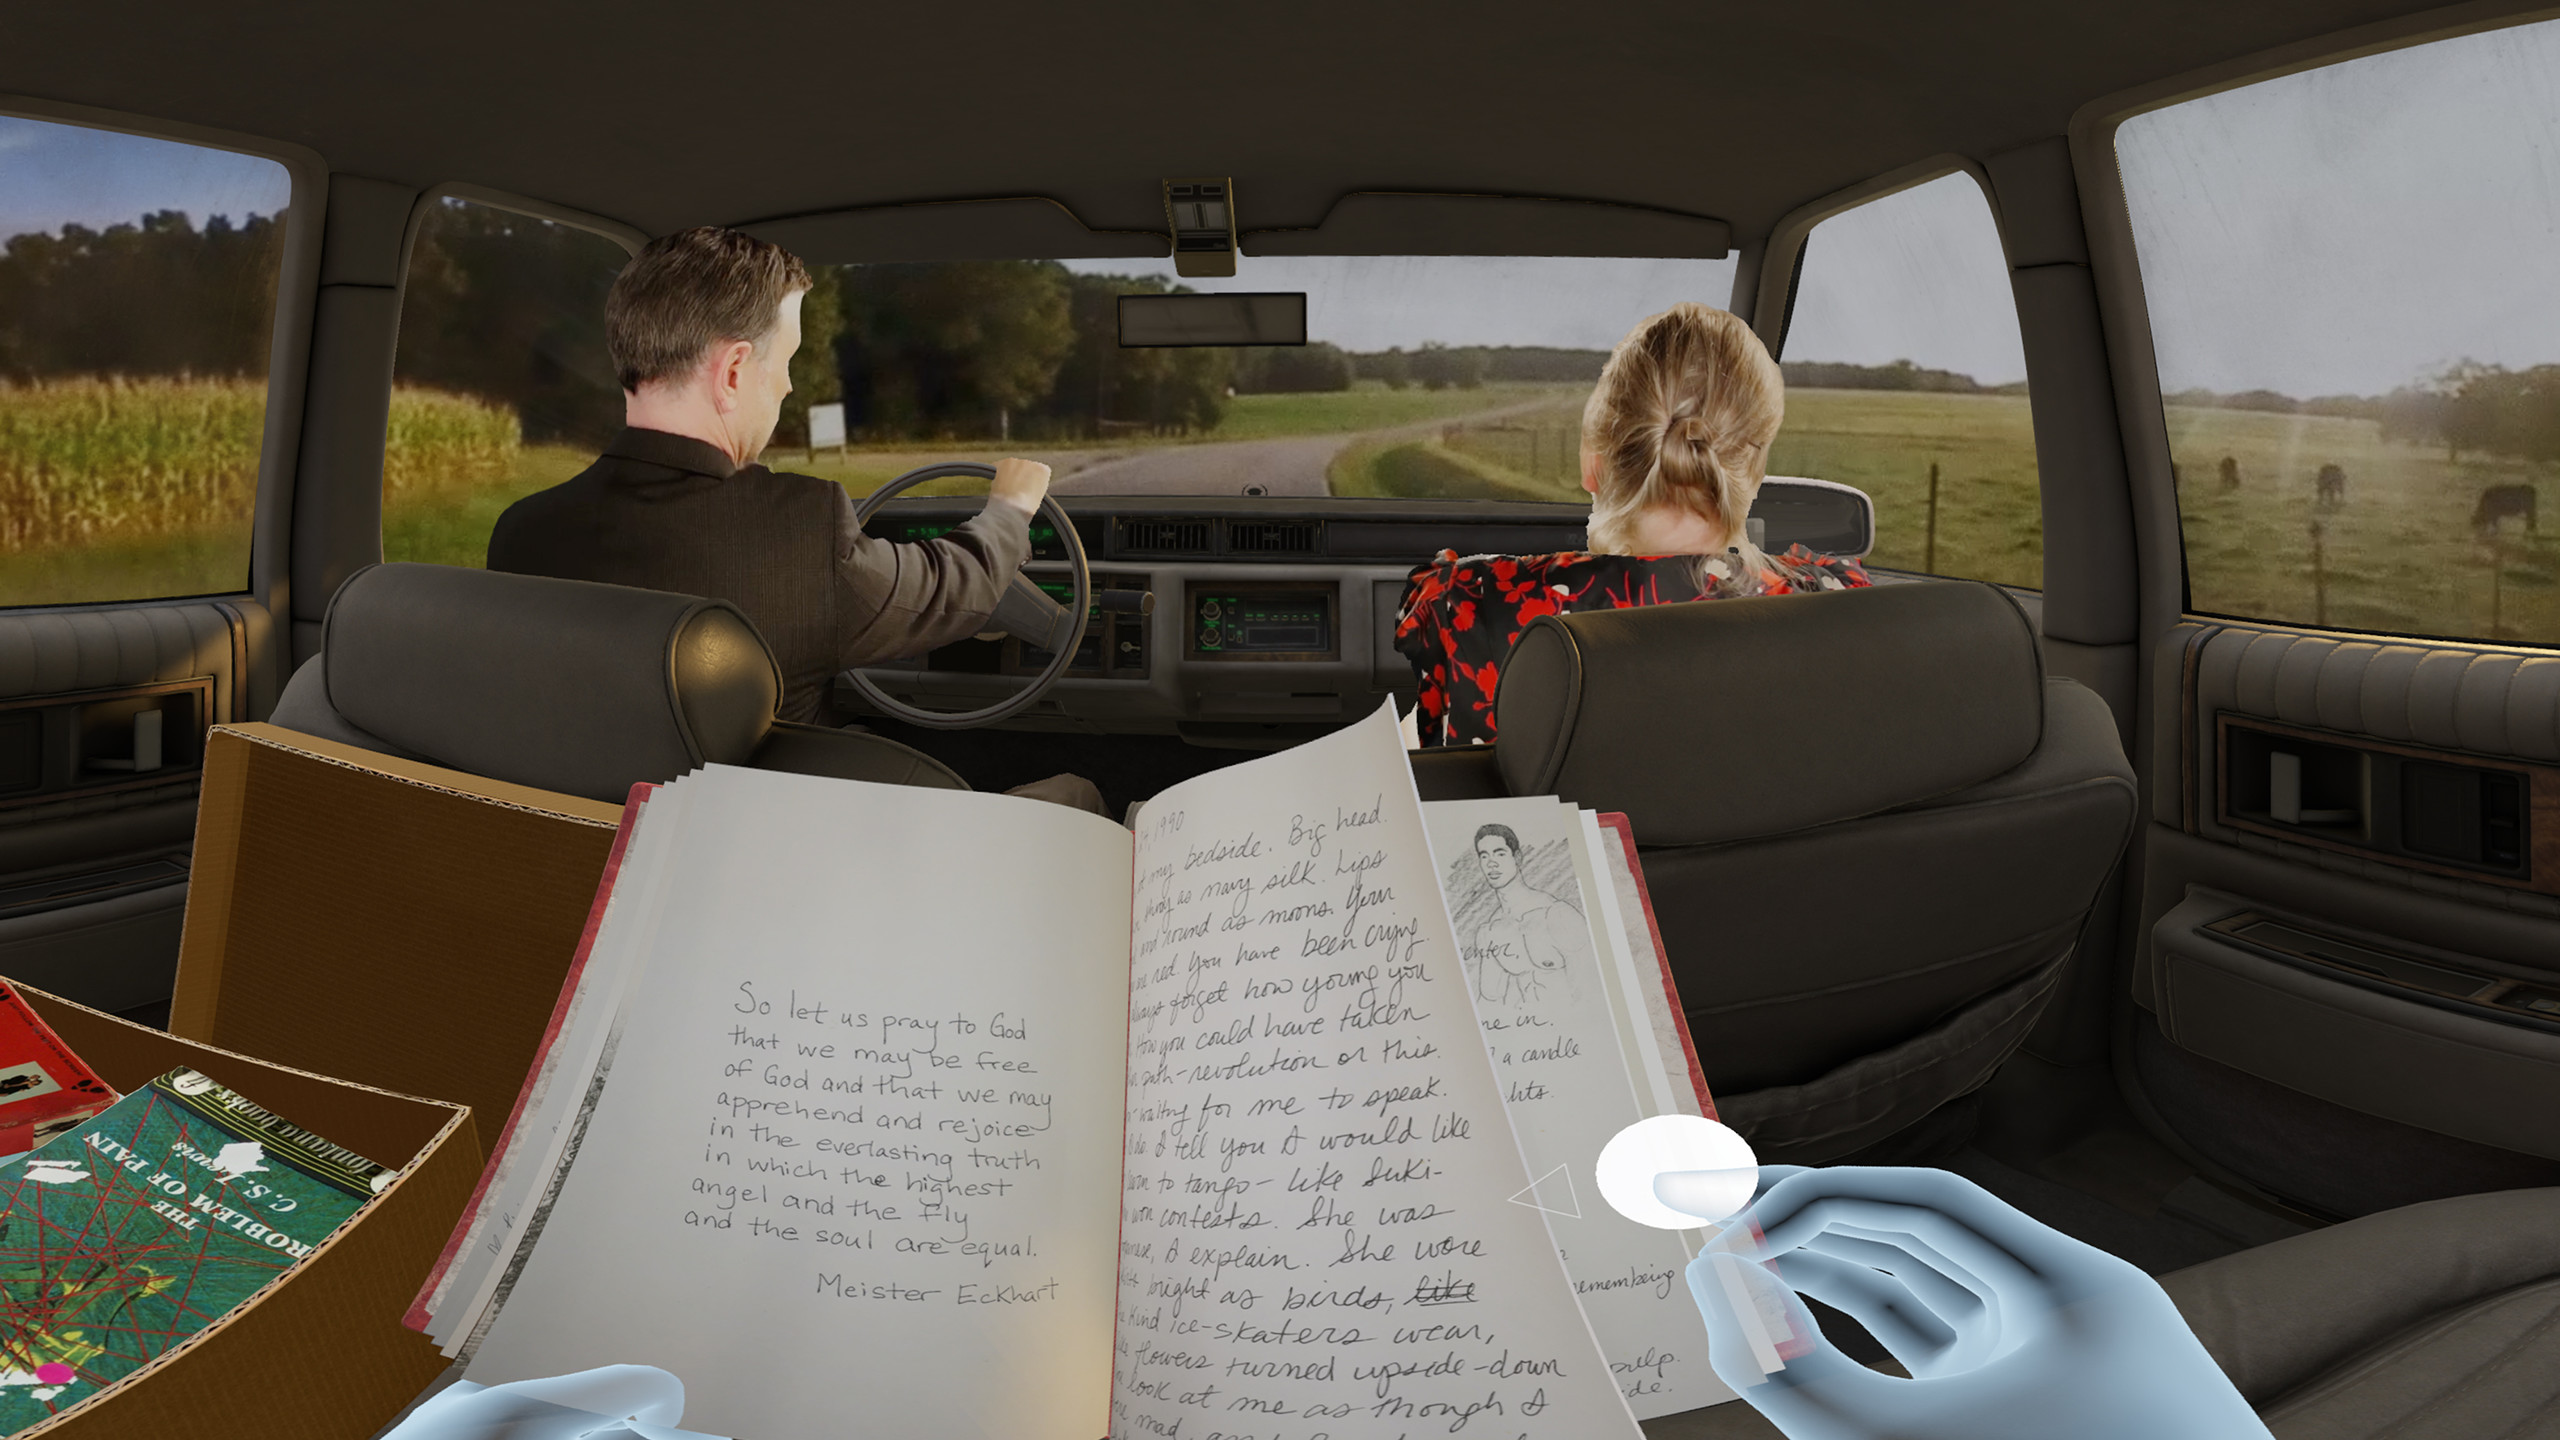 So let us pray to God
that we may be free
of God and that we may
apprehend and rejoice
in the everlasting truth
in which the highest
angel and the fly
and the soul are equal.
Meister Eckhart
1990
my bedside. Big head.
as navy silk. Lips
and round as moons. Your
red. You have been crying.
forget how young you
How you could have taken
path-revolution or this.
waiting for me to speak.
I tell you I would like
to tango - like Suki-
won contests. She was
I explain. She wore
bright as birds, like
kind ice-skaters wear,
flowers turned upside-down
look at me as though I
mad
me in.
a candle
remembeing
pulp.
THE
PROBLEM OF PAIN
C.S. Lewis
fontana books